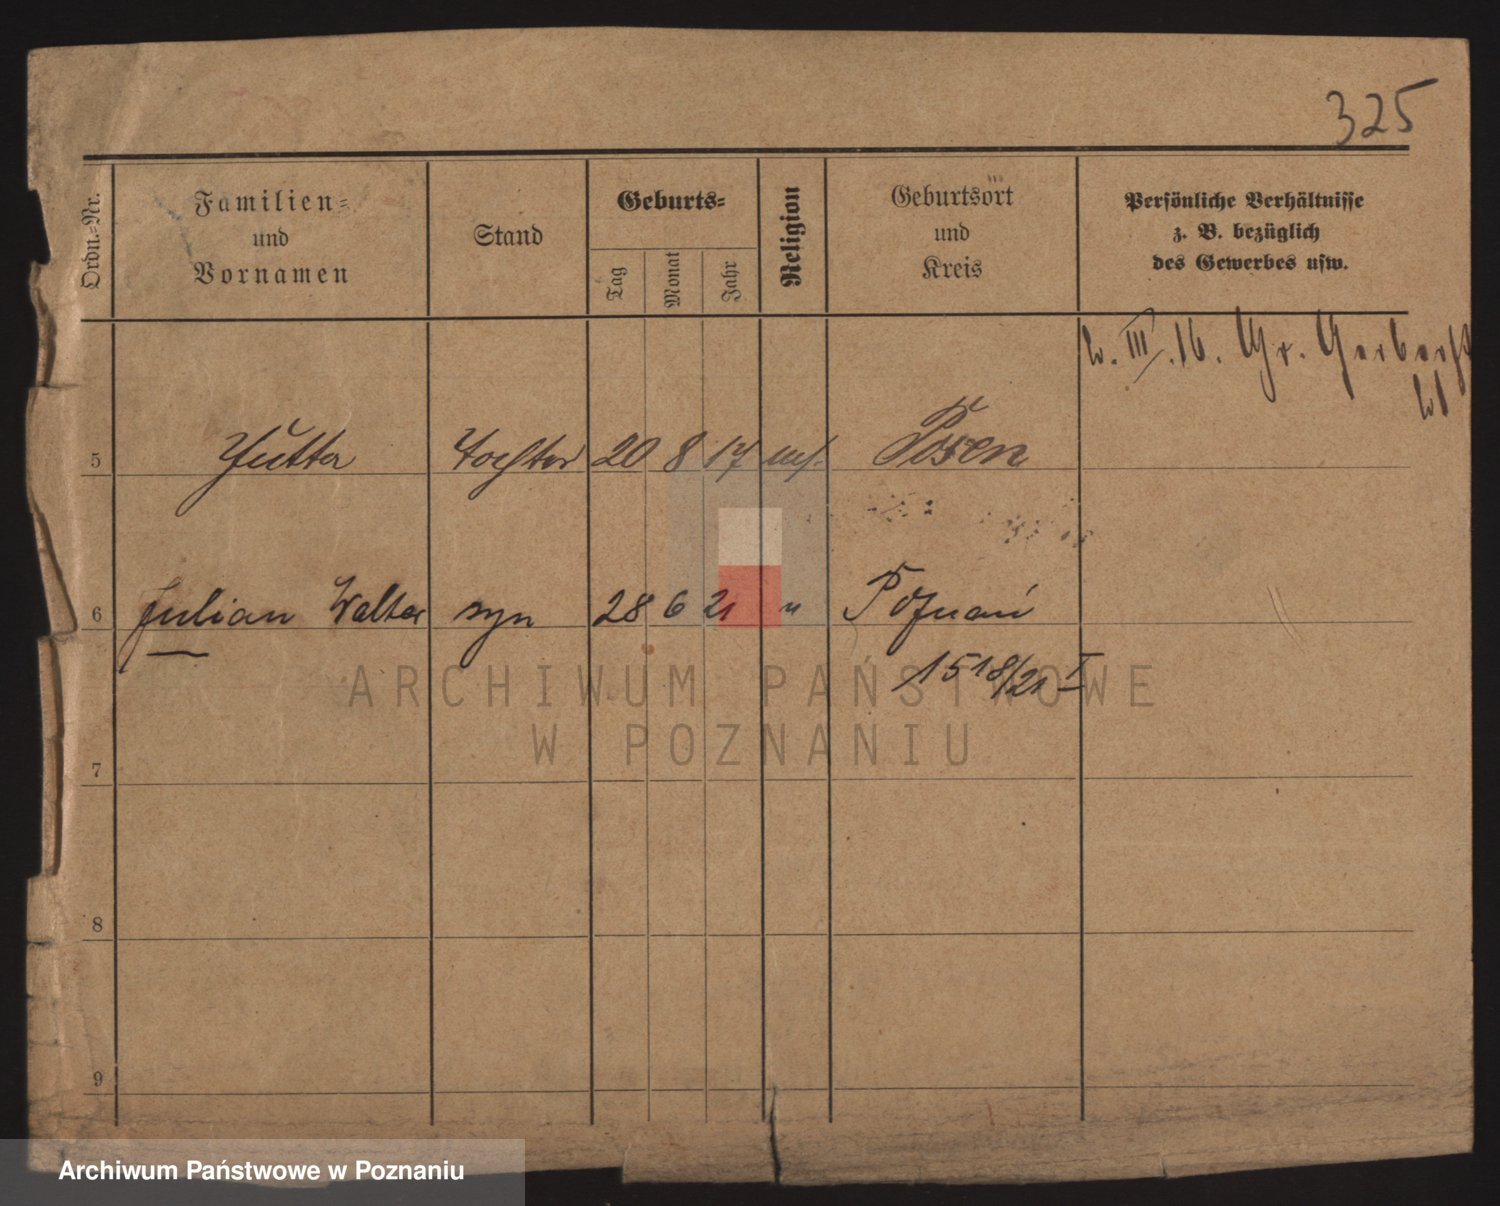 325
Ordn.-Nr.
Familien-
und
Vornamen
Stand
Geburts-
Tag
Monat
Jahr
Religion
Geburtsort
und
Kreis
Persönliche Verhältnisse
z. B. bezüglich
des Gewerbes usw.
III. 16. Gr. Gerberst
5 Jutta Tochter 20 8 17 Posen
6 Julian Walter syn 28 6 21 " Poznań
1518/21 I
7
8
9
ARCHIWUM PAŃSTWOWE
W POZNANIU
Archiwum Państwowe w Poznaniu